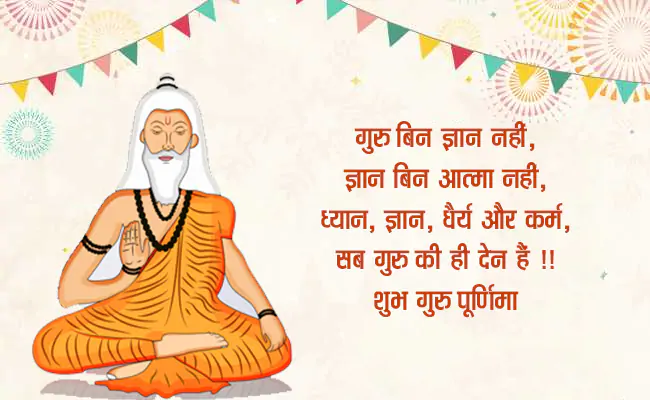 गुरु बिन ज्ञान नहीं,
ज्ञान बिन आत्मा नही,
ध्यान, ज्ञान, धैर्य और कर्म,
सब गुरु की ही देन हैं !!
शुभ गुरु पूर्णिमा